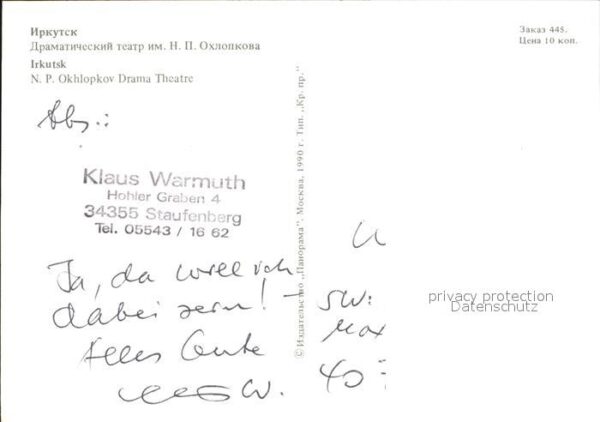 Иркутск
Драматический театр им. Н. П. Охлопкова
Irkutsk
N. P. Okhlopkov Drama Theatre
Заказ 445.
Цена 10 коп.
Abs.:
Klaus Warmuth
Hohler Graben 4
34355 Staufenberg
Tel. 05543 / 16 62
Ja, da will ich
dabei sein! –
Alles Gute
W.
© Издательство „Панорама”. Москва, 1990 г. Тип. „Кр. пр.”
privacy protection
Datenschutz